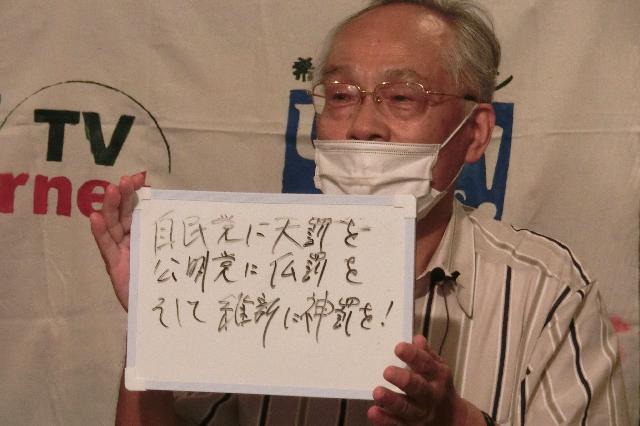 TV
rne
希
自民党に天罰を
公明党に仏罰を
そして維新に神罰を!